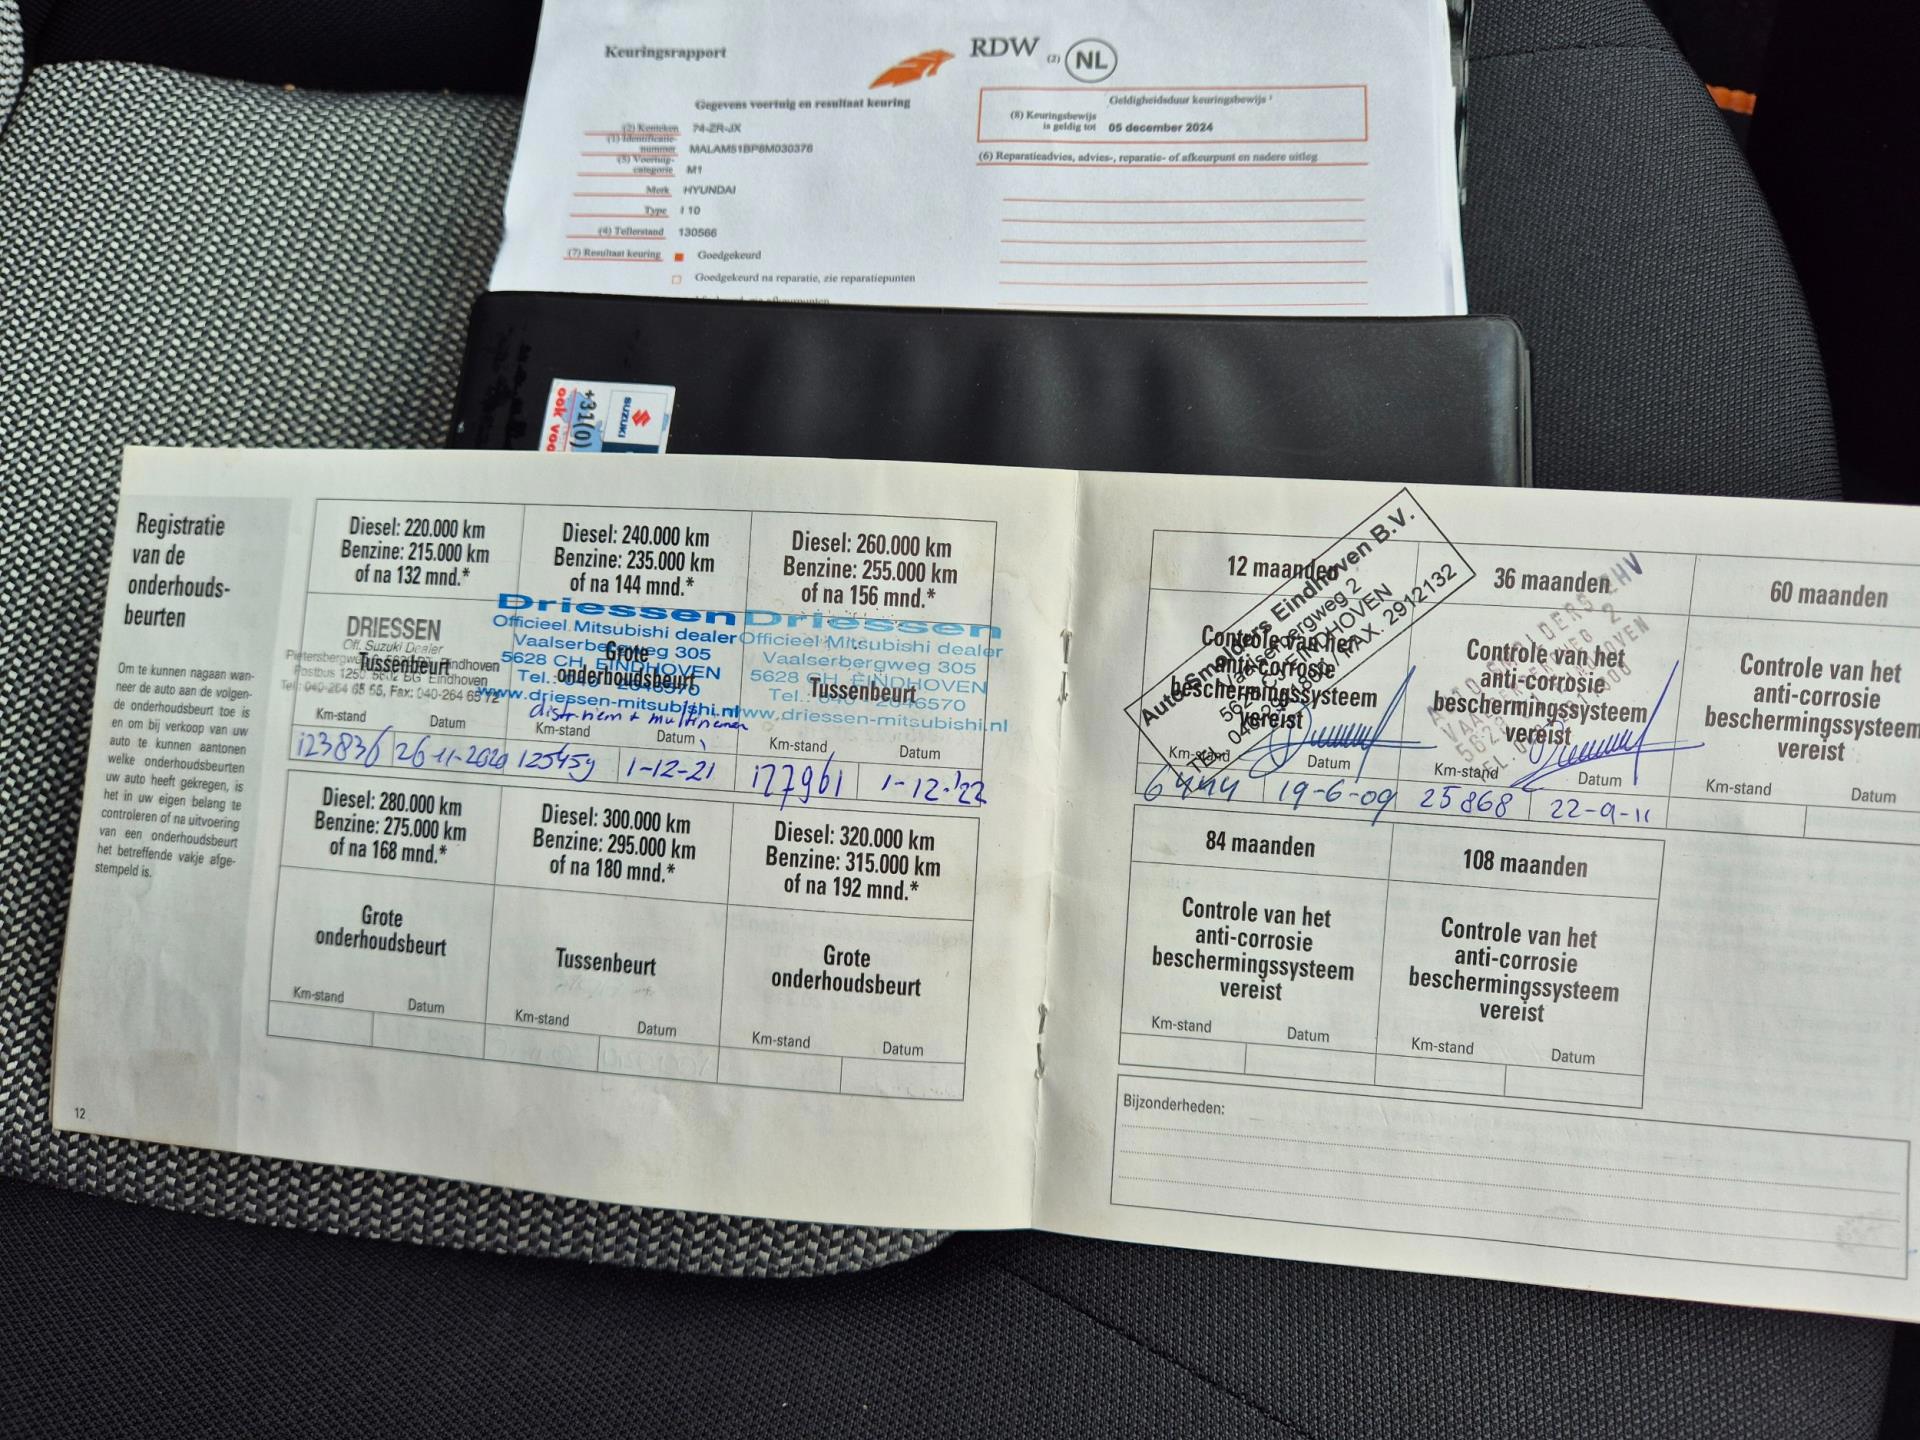 Keuringsrapport
RDW (2) NL
Gegevens voertuig en resultaat keuring
(2) Kenteken 74-ZR-JX
(1) Identificatie-
nummer MALAM51BP8M030376
(5) Voertuig-
categorie M1
Merk HYUNDAI
Type I 10
(4) Tellerstand 130566
(7) Resultaat keuring Goedgekeurd
Goedgekeurd na reparatie, zie reparatiepunten
Geldigheidsduur keuringsbewijs ¹
(8) Keuringsbewijs
is geldig tot 05 december 2024
(6) Reparatieadvies, advies-, reparatie- of afkeurpunt en nadere uitleg
SUZUKI
+31(0)
ook voo
Registratie
van de
onderhouds-
beurten
Om te kunnen nagaan wan-
neer de auto aan de volgen-
de onderhoudsbeurt toe is
en om bij verkoop van uw
auto te kunnen aantonen
welke onderhoudsbeurten
uw auto heeft gekregen, is
het in uw eigen belang te
controleren of na uitvoering
van een onderhoudsbeurt
het betreffende vakje afge-
stempeld is.
12
Diesel: 220.000 km
Benzine: 215.000 km
of na 132 mnd.*
DRIESSEN
Off. Suzuki Dealer
Eindhoven
Eindhoven
Tel: 040-264 65 55, Fax: 040-264 65 72
Tussenbeurt
Km-stand Datum
123836 26-11-2020
Diesel: 240.000 km
Benzine: 235.000 km
of na 144 mnd.*
Driessen
Officieel Mitsubishi dealer
Vaalserbergweg 305
5628 CH EINDHOVEN
Tel.: 040 - 2646570
www.driessen-mitsubishi.nl
Grote
onderhoudsbeurt
distr riem + multiriemen
Km-stand Datum
125459 1-12-21
Diesel: 260.000 km
Benzine: 255.000 km
of na 156 mnd.*
Driessen
Officieel Mitsubishi dealer
Vaalserbergweg 305
5628 CH EINDHOVEN
Tel.: 040 - 2646570
www.driessen-mitsubishi.nl
Tussenbeurt
Km-stand Datum
127961 1-12-'22
Diesel: 280.000 km
Benzine: 275.000 km
of na 168 mnd.*
Grote
onderhoudsbeurt
Km-stand Datum
Diesel: 300.000 km
Benzine: 295.000 km
of na 180 mnd.*
Tussenbeurt
Km-stand Datum
Diesel: 320.000 km
Benzine: 315.000 km
of na 192 mnd.*
Grote
onderhoudsbeurt
Km-stand Datum
12 maanden
Controle van het
anti-corrosie
beschermingssysteem
vereist
Auto Smolders Eindhoven B.V.
Vaalserbergweg 2
EINDHOVEN
FAX. 2912132
Km-stand Datum
6444 19-6-09
36 maanden
Controle van het
anti-corrosie
beschermingssysteem
vereist
Km-stand Datum
25868 22-9-11
60 maanden
Controle van het
anti-corrosie
beschermingssysteem
vereist
Km-stand Datum
84 maanden
Controle van het
anti-corrosie
beschermingssysteem
vereist
Km-stand Datum
108 maanden
Controle van het
anti-corrosie
beschermingssysteem
vereist
Km-stand Datum
Bijzonderheden: